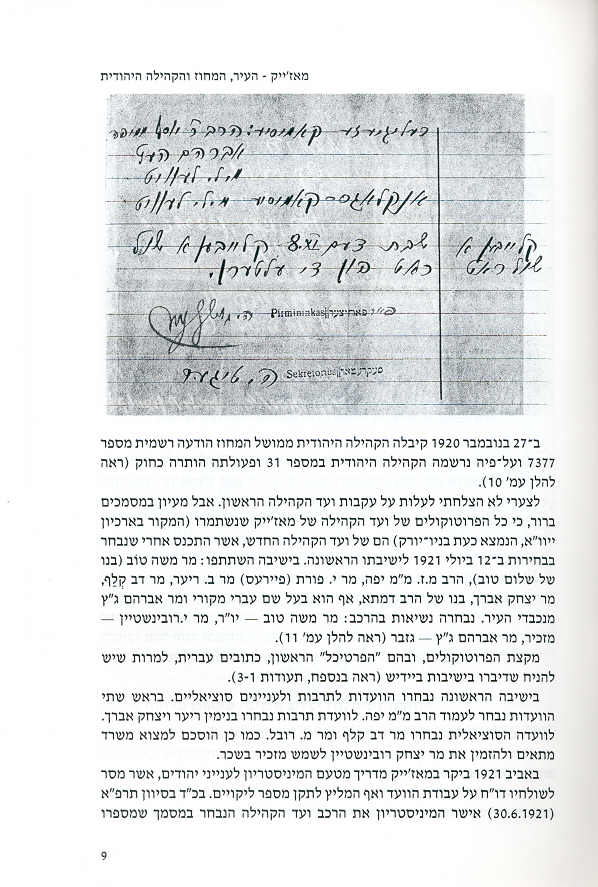 מאז'ייק - העיר, המחוז והקהילה היהודית
רעליגיעזע קאמיסיע: הרב ר'
אברהם
אנקלאגס-קאמיסיע
שבת דעם 8.XI קלייבען א שול
ראט פון די עלטערן.
קלייבען א
שול ראט
Pirmininkas
Sekretorius
ב־27 בנובמבר 1920 קיבלה הקהילה היהודית ממושל המחוז הודעה רשמית מספר
7377 ועל־פיה נרשמה הקהילה היהודית במספר 31 ופעולתה הותרה כחוק (ראה
להלן עמ' 10).
לצערי לא הצלחתי לעלות על עקבות ועד הקהילה הראשון. אבל מעיון במסמכים
ברור, כי כל הפרוטוקולים של ועד הקהילה של מאז'ייק שנשתמרו (המקור בארכיון
ייוו"א, הנמצא כעת בניו־יורק) הם של ועד הקהילה החדש, אשר התכנס אחרי שנבחר
בבחירות ב־12 ביולי 1921 לישיבתו הראשונה. בישיבה השתתפו: מר משה טוֹב (בנו
של שלום טוב), הרב מ.ז. מ"מ יפה, מר י. פורת (פיירעס) מר ב. ריער, מר דב קְלַף,
מר יצחק אברך, בנו של הרב דמתא, אף הוא בעל שם עברי מקורי ומר אברהם ג"ץ
מנכבדי העיר. נבחרה נשיאות בהרכב: מר משה טוב — יו"ר, מר י.רובינשטיין —
מזכיר, מר אברהם ג"ץ — גזבר (ראה להלן עמ' 11).
מקצת הפרוטוקולים, ובהם "הפרטיכל" הראשון, כתובים עברית, למרות שיש
להניח שדיברו בישיבות ביידיש (ראה בנספח, תעודות 3-1).
בישיבה הראשונה נבחרו הוועדות לתרבות ולעניינים סוציאליים. בראש שתי
הוועדות נבחר לעמוד הרב מ"מ יפה. לוועדת תרבות נבחרו בנימין ריער ויצחק אברך.
לוועדה הסוציאלית נבחרו מר דב קלף ומר מ. רובל. כמו כן הוסכם למצוא משרד
מתאים ולהזמין את מר יצחק רובינשטיין לשמש מזכיר בשכר.
באביב 1921 ביקר במאז'ייק מדריך מטעם המיניסטריון לענייני יהודים, אשר מסר
לשולחיו דו"ח על עבודת הוועד ואף המליץ לתקן מספר ליקויים. בכ"ד בסיוון תרפ"א
(30.6.1921) אישר המיניסטריון את הרכב ועד הקהילה הנבחר במסמך שמספרו
9